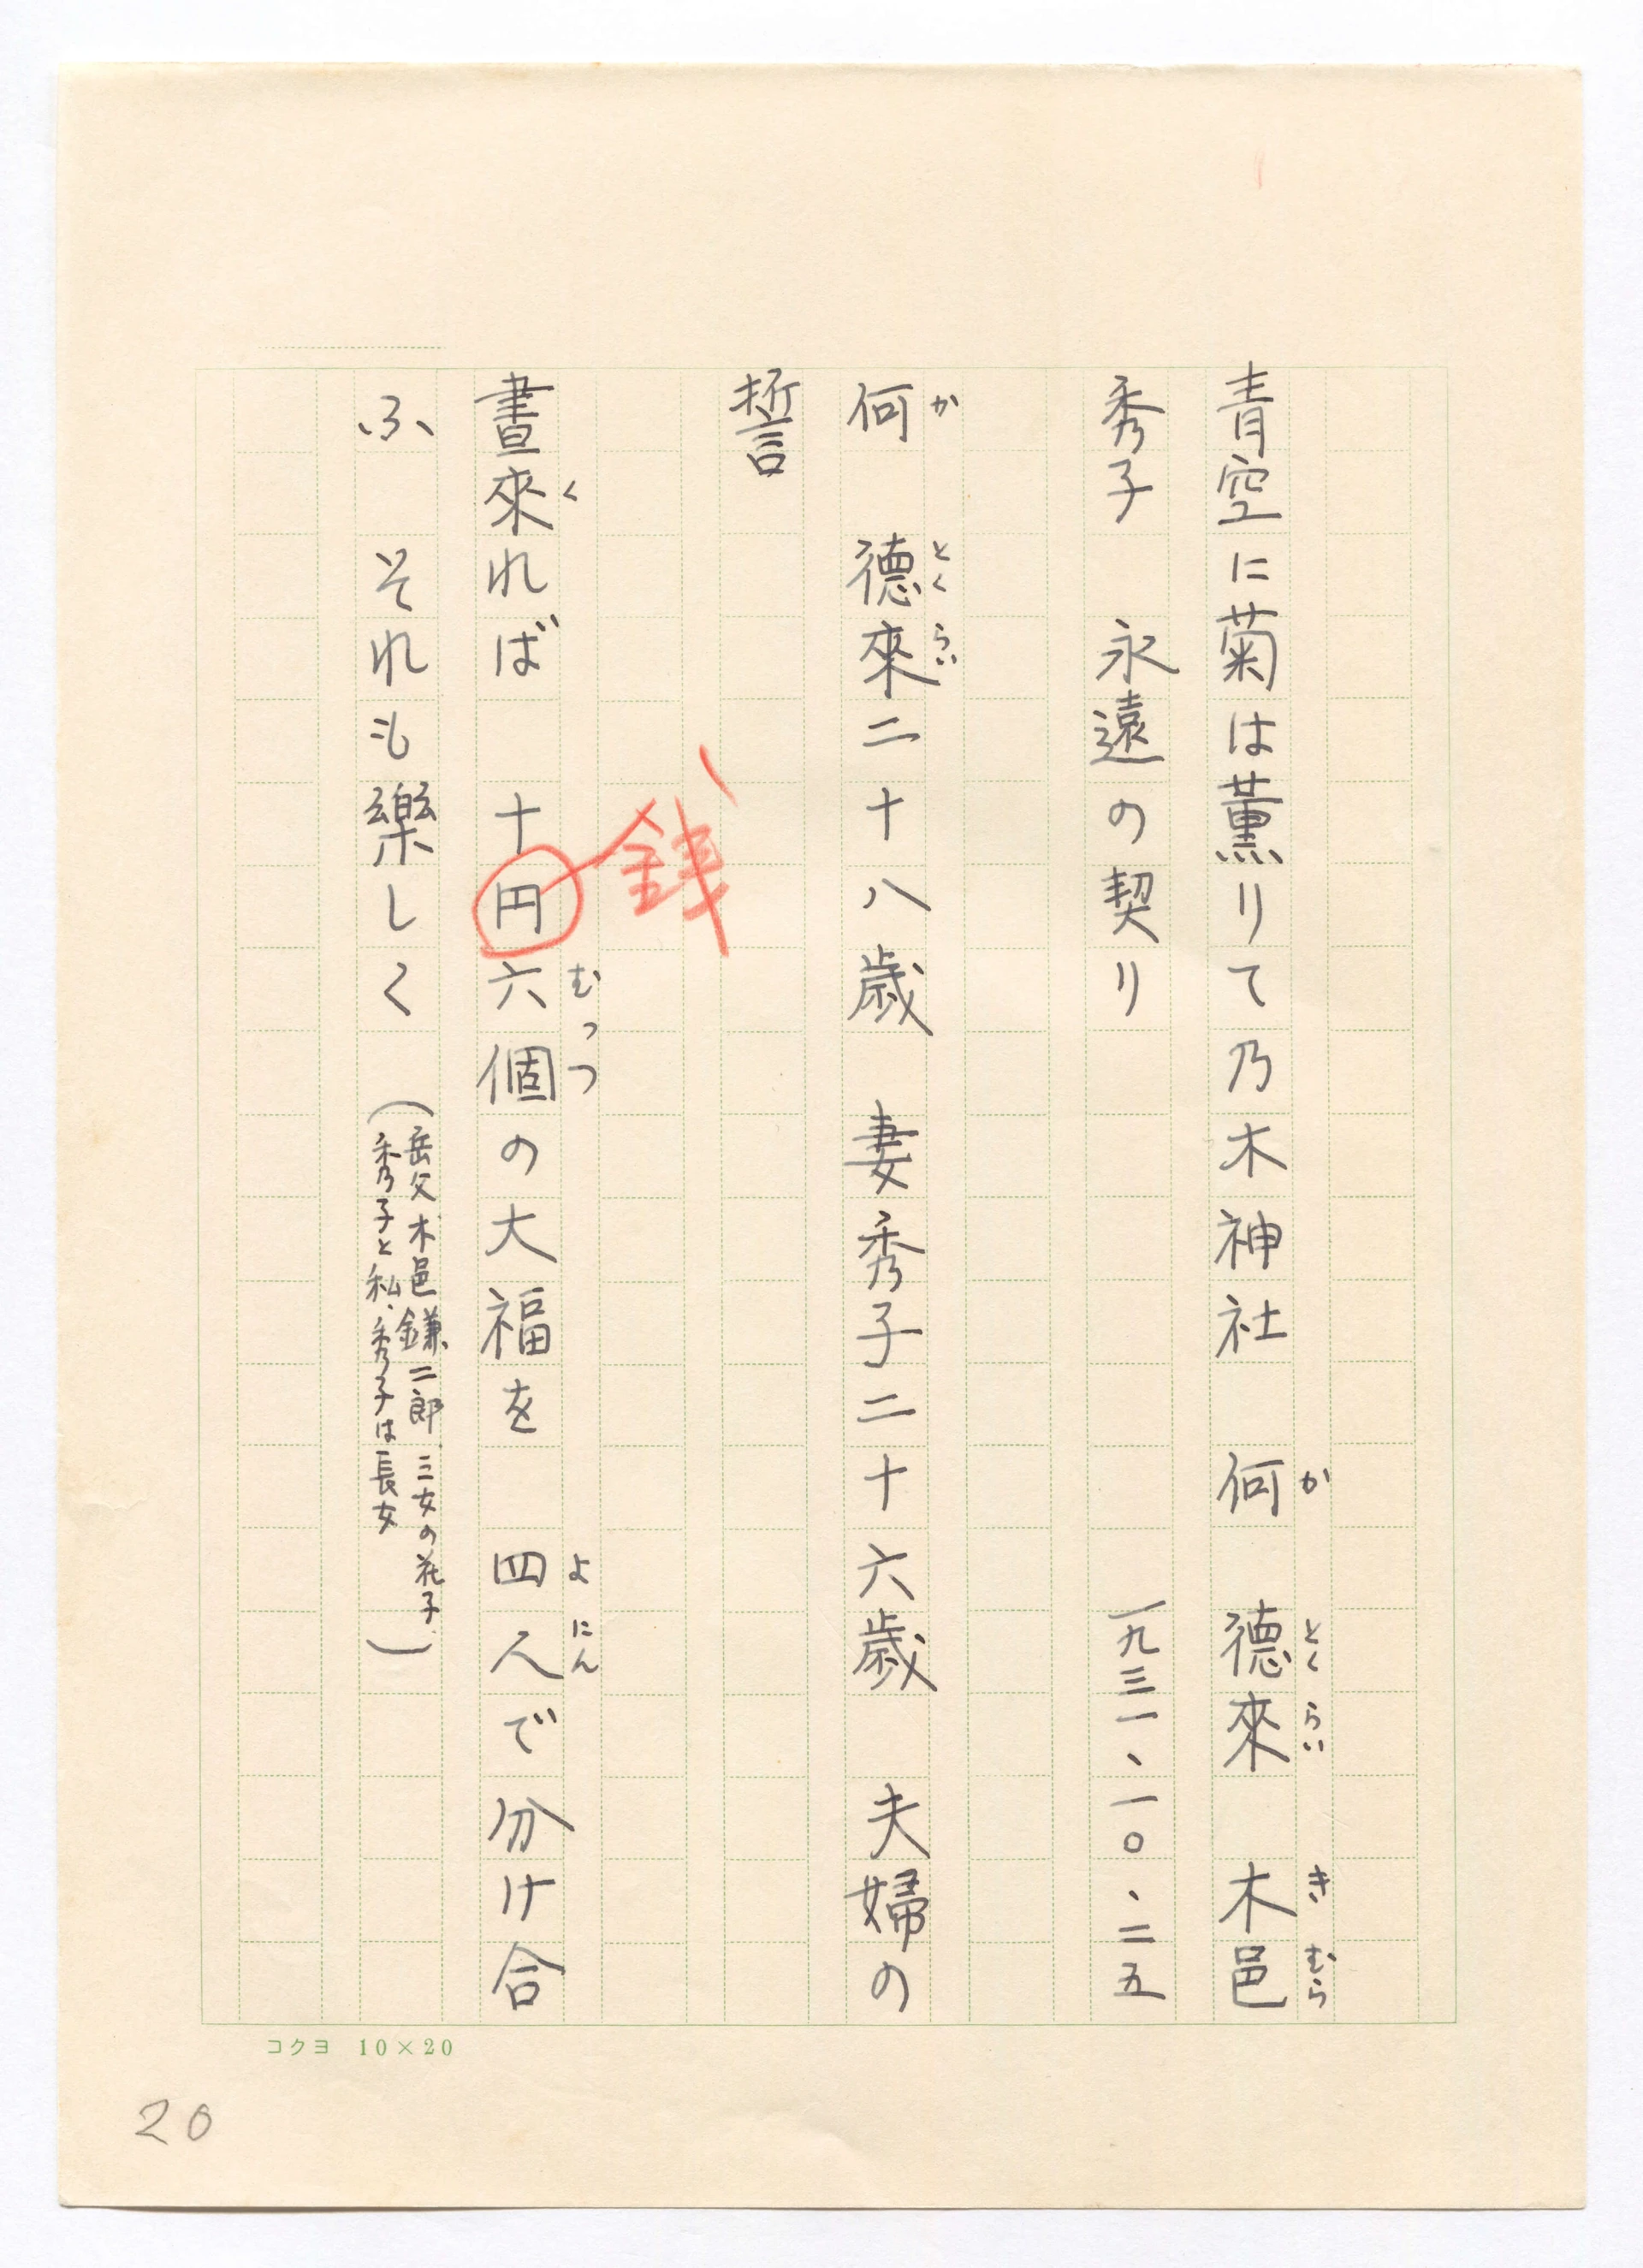 青空に菊は薫りて乃木神社　何　德來　木邑
か　とくらい　きむら
秀子　永遠の契り　一九三一、一〇、二五
何　德來二十八歳　妻秀子二十六歳　夫婦の
か　とくらい
誓
銭
晝來れば　十円六個の大福を　四人で分け合
く　むっつ　よにん
ふ　それも樂しく（岳父木邑鎌二郎、三女の花子、
秀子と私、秀子は長女）
コクヨ　10×20
20